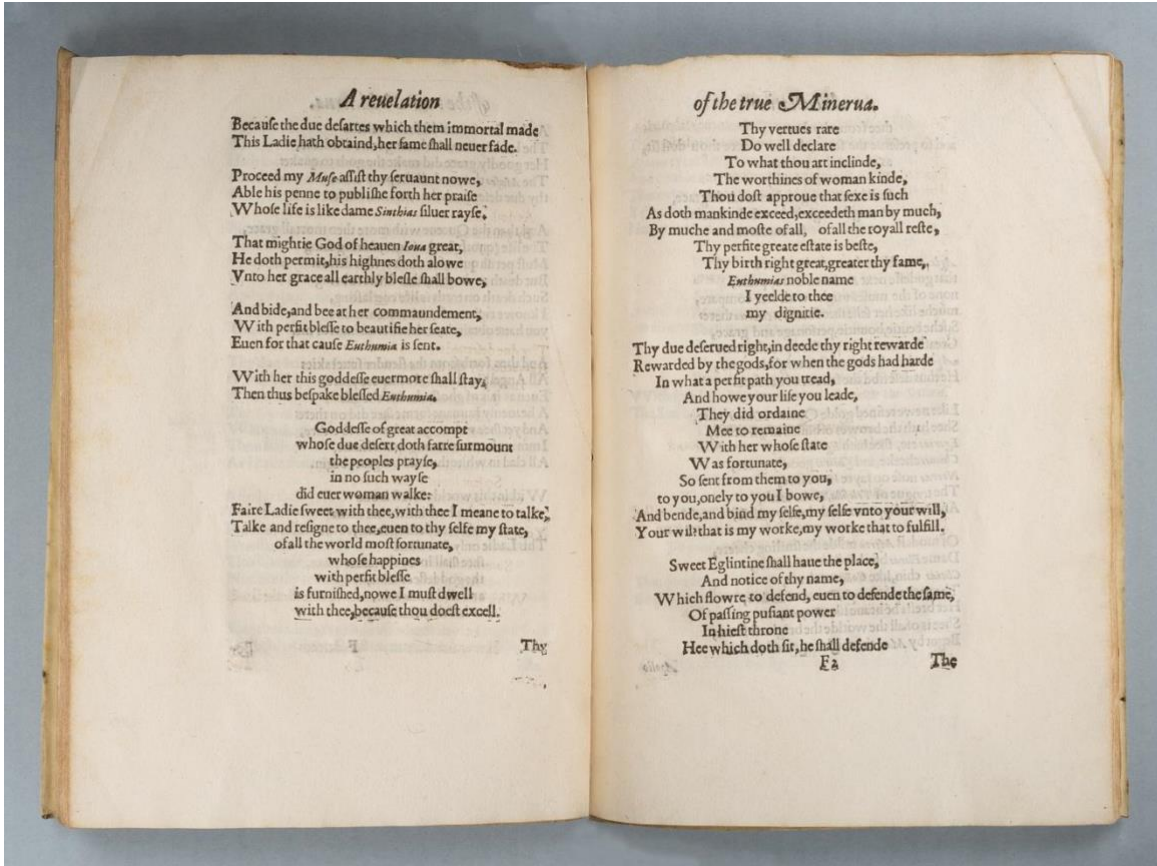 A reuelation
Becauſe the due deſartes which them immortal made
This Ladie hath obtaind,her fame ſhall neuer fade.
Proceed my Muſe aſſiſt thy ſeruaunt nowe,
Able his penne to publiſhe forth her praiſe
Whoſe life is like dame Sinthias ſiluer rayſe.
That mightie God of heauen Ioua great,
He doth permit,his highnes doth alowe
Vnto her grace all earthly bleſſe ſhall bowe,
And bide,and bee at her commaundement,
With perfit bleſſe to beautifie her ſeate,
Euen for that cauſe Euthumia is ſent.
With her this goddeſſe euermore ſhall ſtay,
Then thus beſpake bleſſed Euthumia.
Goddeſſe of great accompt
whoſe due deſert doth farre ſurmount
the peoples prayſe,
in no ſuch wayſe
did euer woman walke:
Faire Ladie ſweet with thee,with thee I meane to talke,
Talke and reſigne to thee,euen to thy ſelfe my ſtate,
of all the world moſt fortunate,
whoſe happines
with perfit bleſſe
is furniſhed,nowe I muſt dwell
with thee,becauſe thou doeſt excell.
Thy
of the true Minerua.
Thy vertues rare
Do well declare
To what thou art inclinde,
The worthines of woman kinde,
Thou doſt approue that ſexe is ſuch
As doth mankinde exceed,exceedeth man by much,
By muche and moſte of all, of all the royall reſte,
Thy perfite greate eſtate is beſte,
Thy birth right great,greater thy fame,
Euthumias noble name
I yeelde to thee
my dignitie.
Thy due deſerued right,in deede thy right rewarde
Rewarded by the gods,for when the gods had harde
In what a perfit path you tread,
And howe your life you leade,
They did ordaine
Mee to remaine
With her whoſe ſtate
Was fortunate,
So ſent from them to you,
to you,onely to you I bowe,
And bende,and bind my ſelfe,my ſelfe vnto your will,
Your wil that is my worke,my worke that to fulfill.
Sweet Eglintine ſhall haue the place,
And notice of thy name,
Which flowre to defend, euen to defende the ſame,
Of paſſing puſiant power
In hieſt throne
Hee which doth ſit, he ſhall defende
F2
The